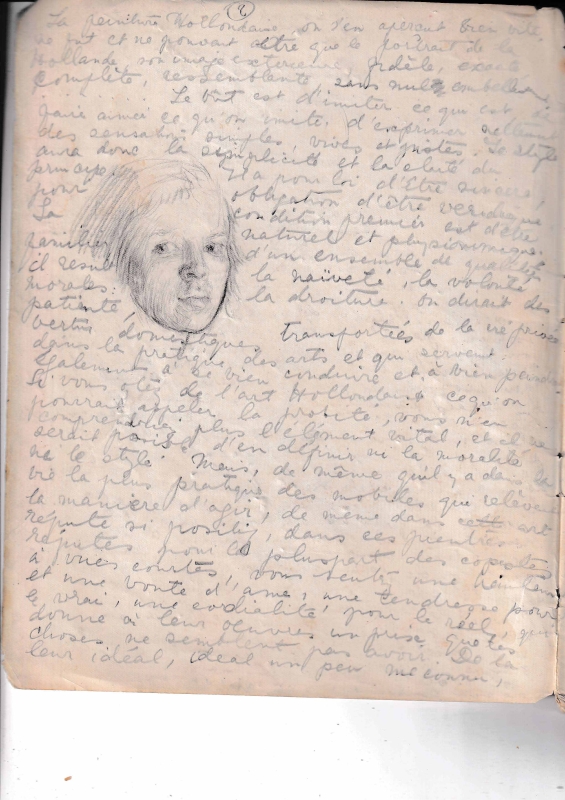 (2)
La peinture Hollondaise, on s'en aperçut bien vite,
ne fut et ne pouvait être que le portrait de la
Hollande, son image exterieure, fidèle, exacte
complète, ressemblante sans nul embellis
Le but est d'imiter ce qui est de
faire aimer ce qu'on imite, d'exprimer nettement
des sensations simples, vives et justes. Le style
aura donc la simplicité et la clarté du
principe. Il a pour loi d'être sincère,
pour obligation d'être veridique
Sa condition premier est d'être
familier naturel et physionomique.
il resulte d'un ensemble de qualités
morales: la naïveté, la volonté
patiente la droiture. On dirait des
vertus domestique transportées de la vie privée
dans la pratique des arts et qui servent
également à se bien conduire et à bien peindre
Si vous otez de l'art Hollondais ce qu'on
pourrait appeler la probité, vous n'en
comprendriez plus l'élément vital, et il ne
serait possible d'en définir ni la moralité
ni le style. Mais, de même qu'il y a dans la
vie la plus pratique des mobiles qui relèvent
la manière d'agir, de même dans cet art
réputé si positif, dans ces peintres
réputés pour la pluspart des copistes
à vues courtes, vous sentez une hauteur
et une bonté d'ame, une tendresse pour
le vrai, une cordialité pour le réel, qui
donne à leur oeuvres un prix que les
choses ne semblent pas avoir. De là
leur idéal, idéal un peu méconnu,